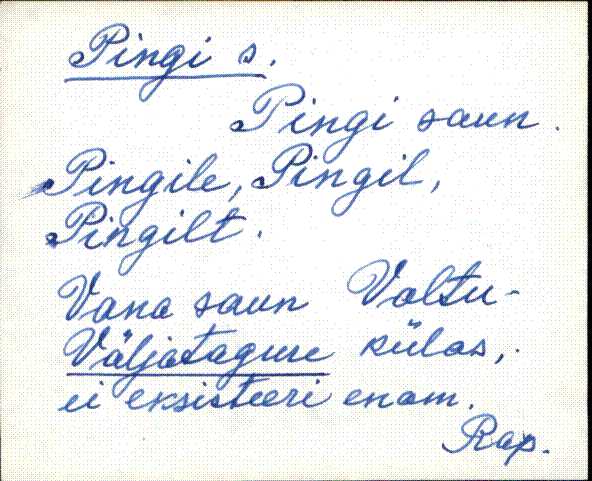 Pingi s.
Pingi saun.
Pingile, Pingil,
Pingilt.
Vana saun Valtu-
Väljataguse külas,
ei eksisteeri enam.
Rap.